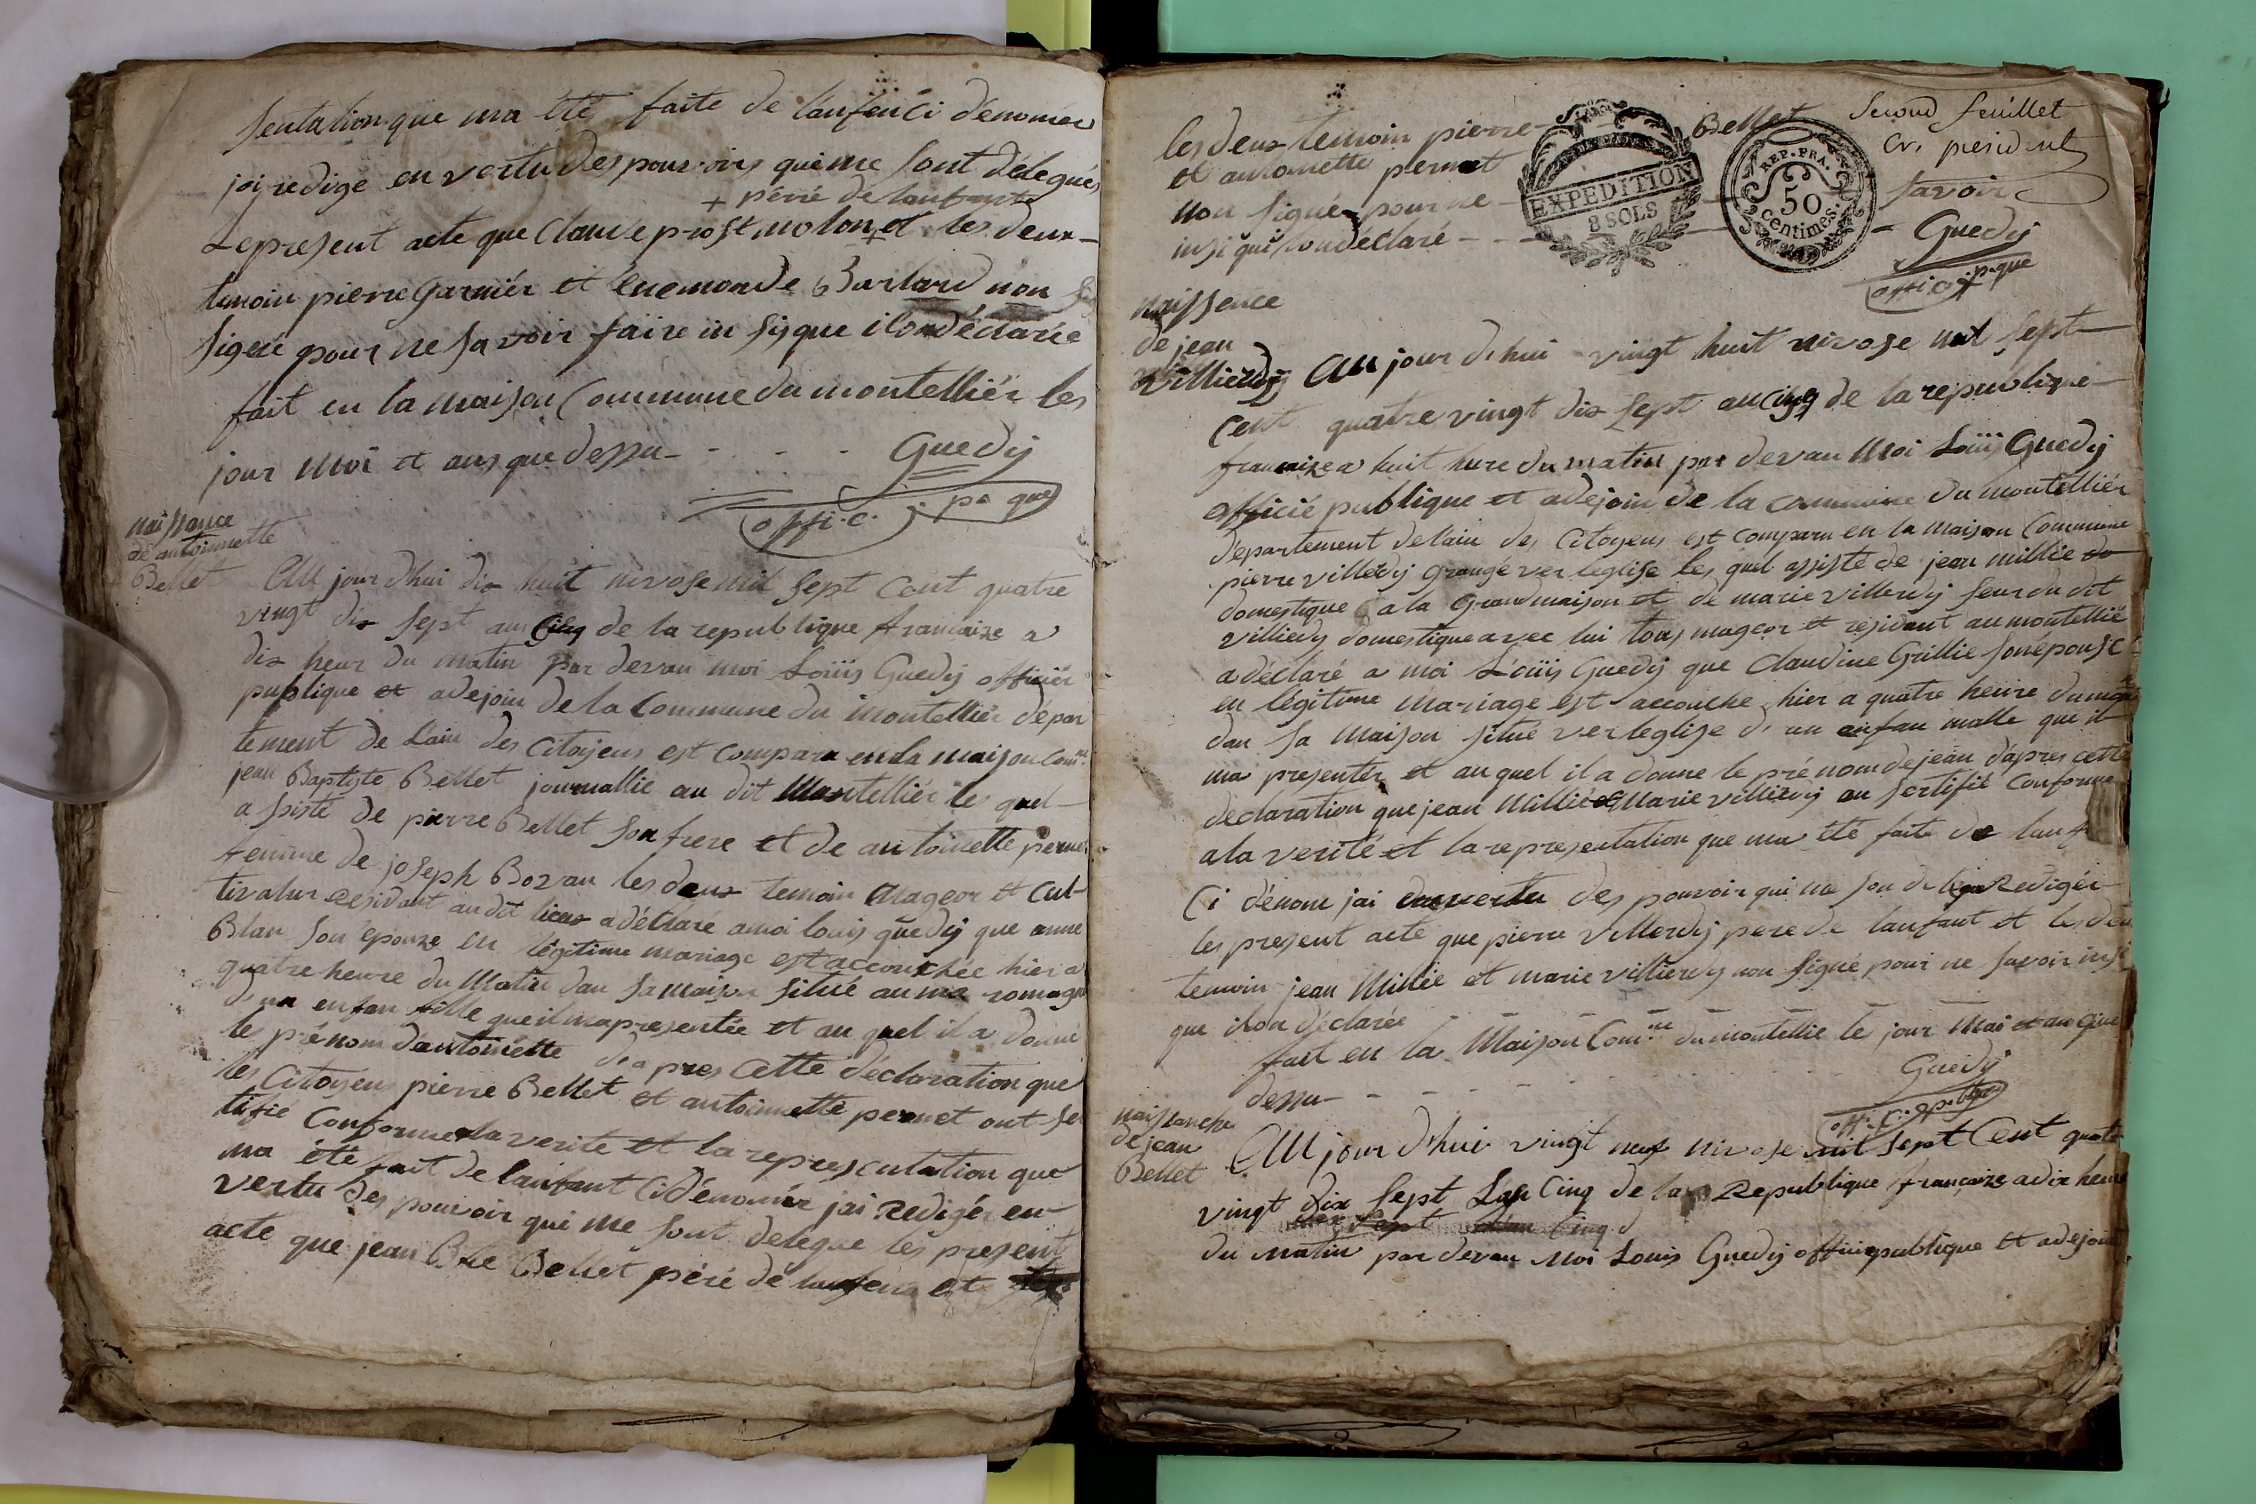 sentation que ma été faite de lanfenci dénomée
jai redigé en vertu des pouvoirs quême sont délegués
+ péré de lanfant
Le present acte que Claude prost molon + et les deux
temoin pierre garniér et Enemonde Barlard non
signé pour ne savoir faire in sisque ilondéclarée
fait en la maison Commune du montelliér les
jour moi et ans que dessu - - - - Guedij
offi.c. pa que
naissance
de antoinnette
Bellet
Au jour dhui dix huit nivose mil sept cent quatre
vingt dix sept an cinq de la republique francaize a
dix heur du matin par devan moi Loüis Guedij officiér
publique et adejoin de la Commune du montelliér dépar
tement de Lain des Citoyens est compara en la maison Comne
jean Baptiste Bellet journallié au dit Montelliér les quel
a sisté de pierre Bellet son frere et de antoinette pernet
femme de joseph Bozan les deux temoin Mageor et Cul-
tivatur residant au dit lieux a déclaré amoi louis guedij que anne
Blan son épouze en légitime mariage est accouchée hier a
quatre heure du Matin dan sa maison situé au ma romagn
d'un enfan fille que il ma presentée et au quel il a donné
le prénom dantoinette d'apres cette déclaration que
les Citoyens pierre Bellet et antoinnette pernet ont ser
tifié Conforme a la verite et la representation que
ma été fait de lanfant Cidénomée jai Redigér en
vertu des pouvoir qui me sont delegue les present
acte que jean Bte Bellet péré de lanfan et
les deux temoin pierre - - Bellet
et antoinette pernet
non signé pour ne - savoir
insi qui londéclaré - - - Guedij
offi.c. p.que
Second feuillet
Cr. president
EXPEDITION
8 SOLS
REP. FRA.
50
centimes.
naissence
de jean
villierdij
Au jour dhui vingt huit nivose mil sept
Cent quatre vingt dix sept an cinq de la republique
francaize a huit hure du matin par devan moi Loüis Guedij
officié publique et adejoin de la commune du montelliér
département delain des Citoyens est comparu en la maison Commune
pierre villerdij grangé ver léglise les quel assisté de jean millié
domestique a la Grand maison et de marie villerdij seur du dit
villierdij domestique avec lui tous mageor et residant au montellié
a déclaré a moi Loüis Guedij que Claudine Grillie son épouse
en légitime mariage est accouche hier a quatre heure du matin
dan sa maison situé ver leglise d'un anfan malle que il
ma presentér et au quel il a donne le prénom de jean dapres cette
declaration que jean Millié et Marie villierdij on sertifié Conforme
a la verité et la representation que ma été faite de lanf
Ci dénome jai en vertu des pouvoir qui me son delegue Redigér
les present acte que pierre villerdij pere de lanfant et les deu
temoin jean Millie et marie villierdij non signé pour ne savoir insi
que ilon déclarée - - - -
fait en la Maison Comne du montellie le jour Moi et an que
dessu - - - - Guedij
offi.c. publique
naissanche
de jean
Bellet
Au jour d'hui vingt neuf nivose mil sept Cent quatre
vingt dix sept Lan Cinq de la Republique française a dix heure
dix sept Cinq d
du matin par devan Moi Louis Guedij officié publique et adejoin